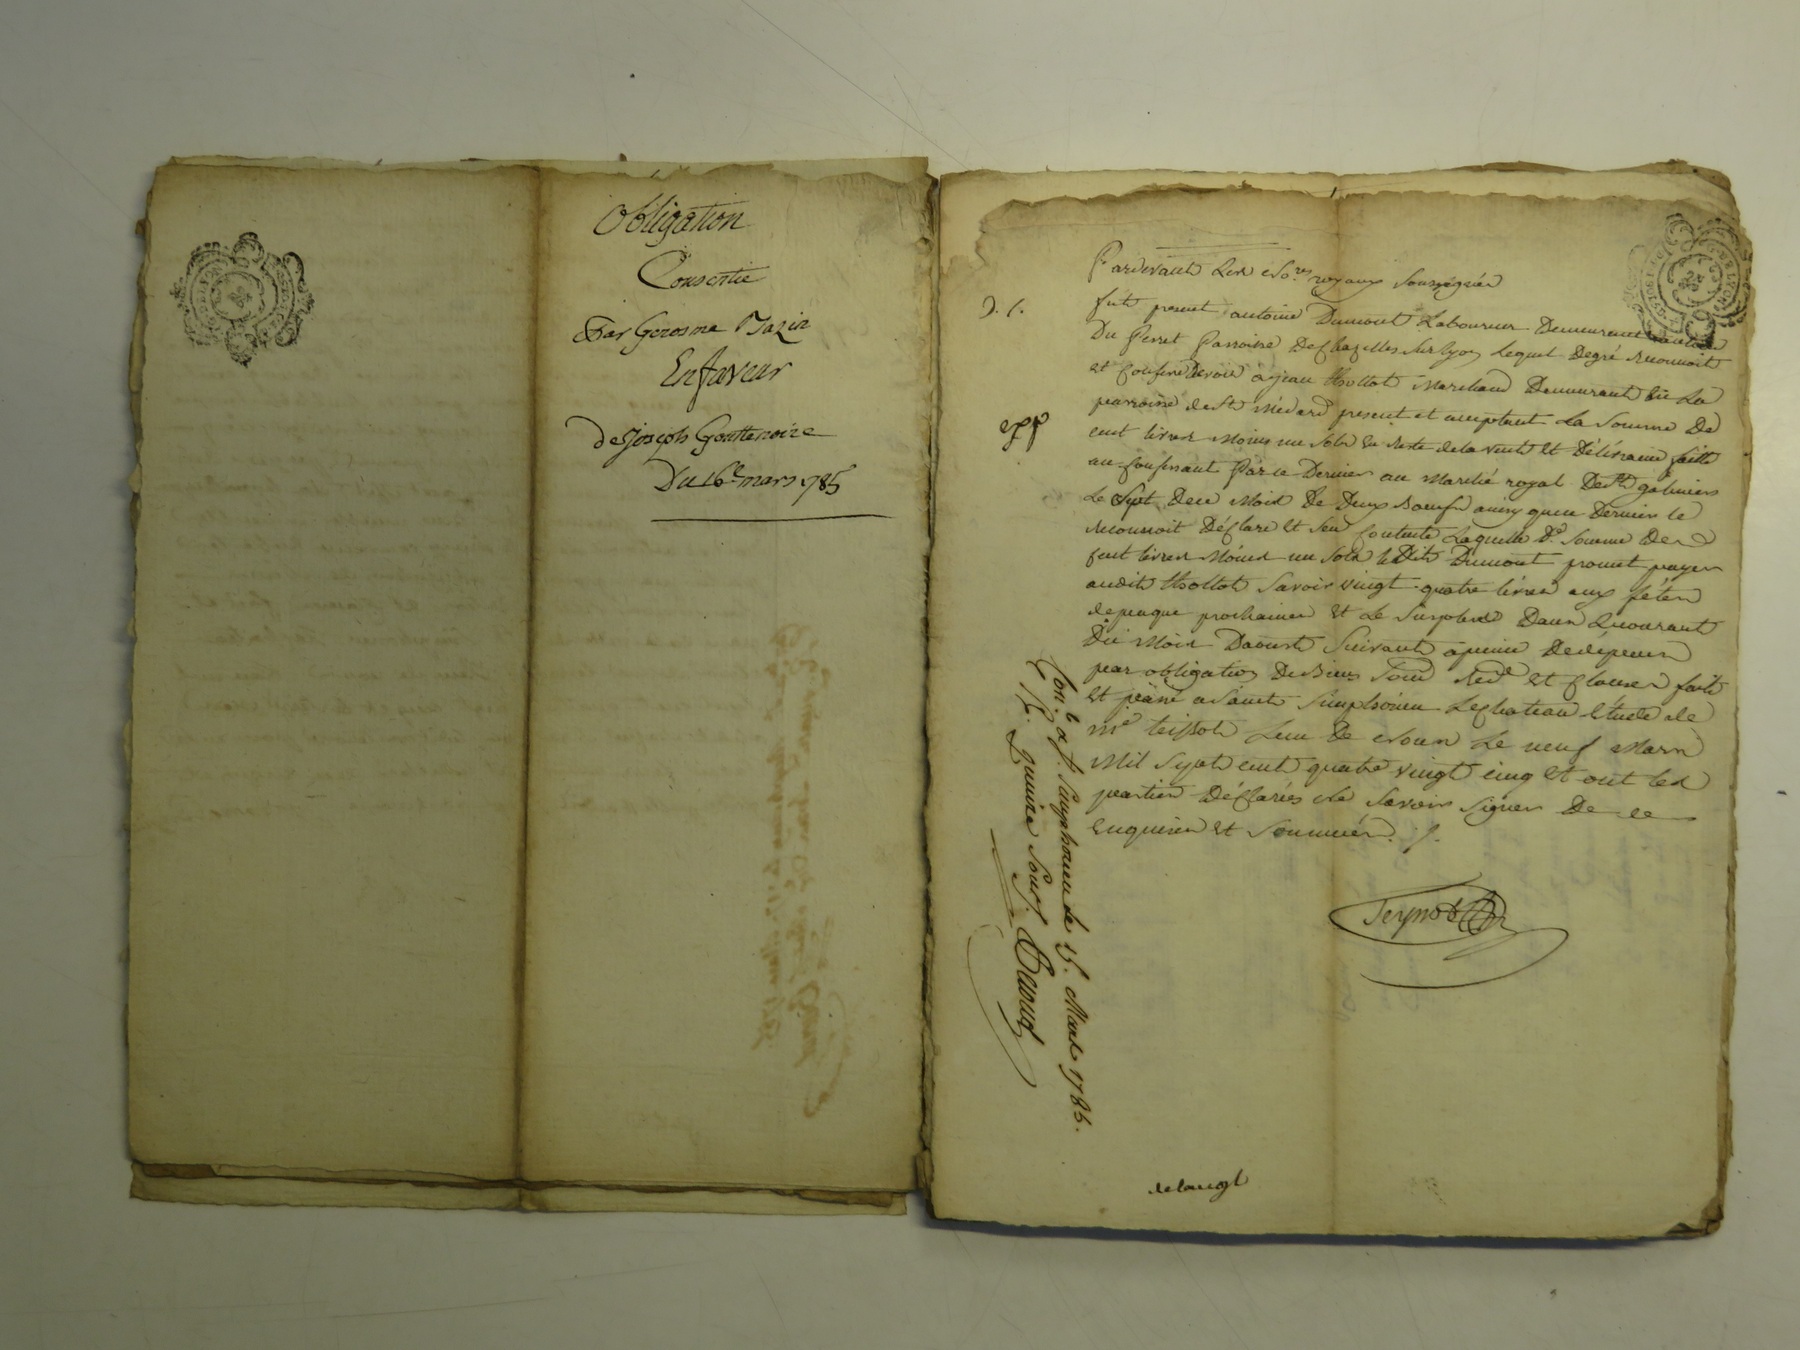 Obligation
Consentie
Par Gerosme Bazin
En faveur
de Joseph Gouttenoire
Du 16e mars 1785
Pardevant Les No.res royaux soussignés
fut present antoine Dumont Laboureur Demeurant
Du Perret Parroisse De Chazelles sur lyon, lequel Degré reconnoit
et Confesse devoir a jean thollot Marchand Demeurant La
parroisse de st Médard present et acceptant La Somme De
cent livres Moins un Sols de reste de la vente et Délivrance faitte
au Confessant Par ce Dernier au Marché royal De st galmier
Le Sept Dece Mois De Deux Boeufs ainsy que ce Dernier le
reconnoit Déclare et Content Laquelle d.e Somme De
Cent livres Moins un Sols le Dit Dumont promet payer
audit thollot Savoir vingt quatre livres aux fêtes
de paque prochaines et Le Surplus Daun Encourant
Du Mois Daoust Suivant apeine De dépens
par obligation De Biens et Clauses faits
et passé a Saint Simphorien Le Chateau Etude de
Me teissot Lun De Nous Le neuf Mars
Mil Sept cent quatre vingt cinq et ont les
parties Déclarées Ne Savoir Signer De ce
Enquises et Sommées. /.
Con.lé a St. Simphorien le 15. Mars 1785.
R. quinze Sous.